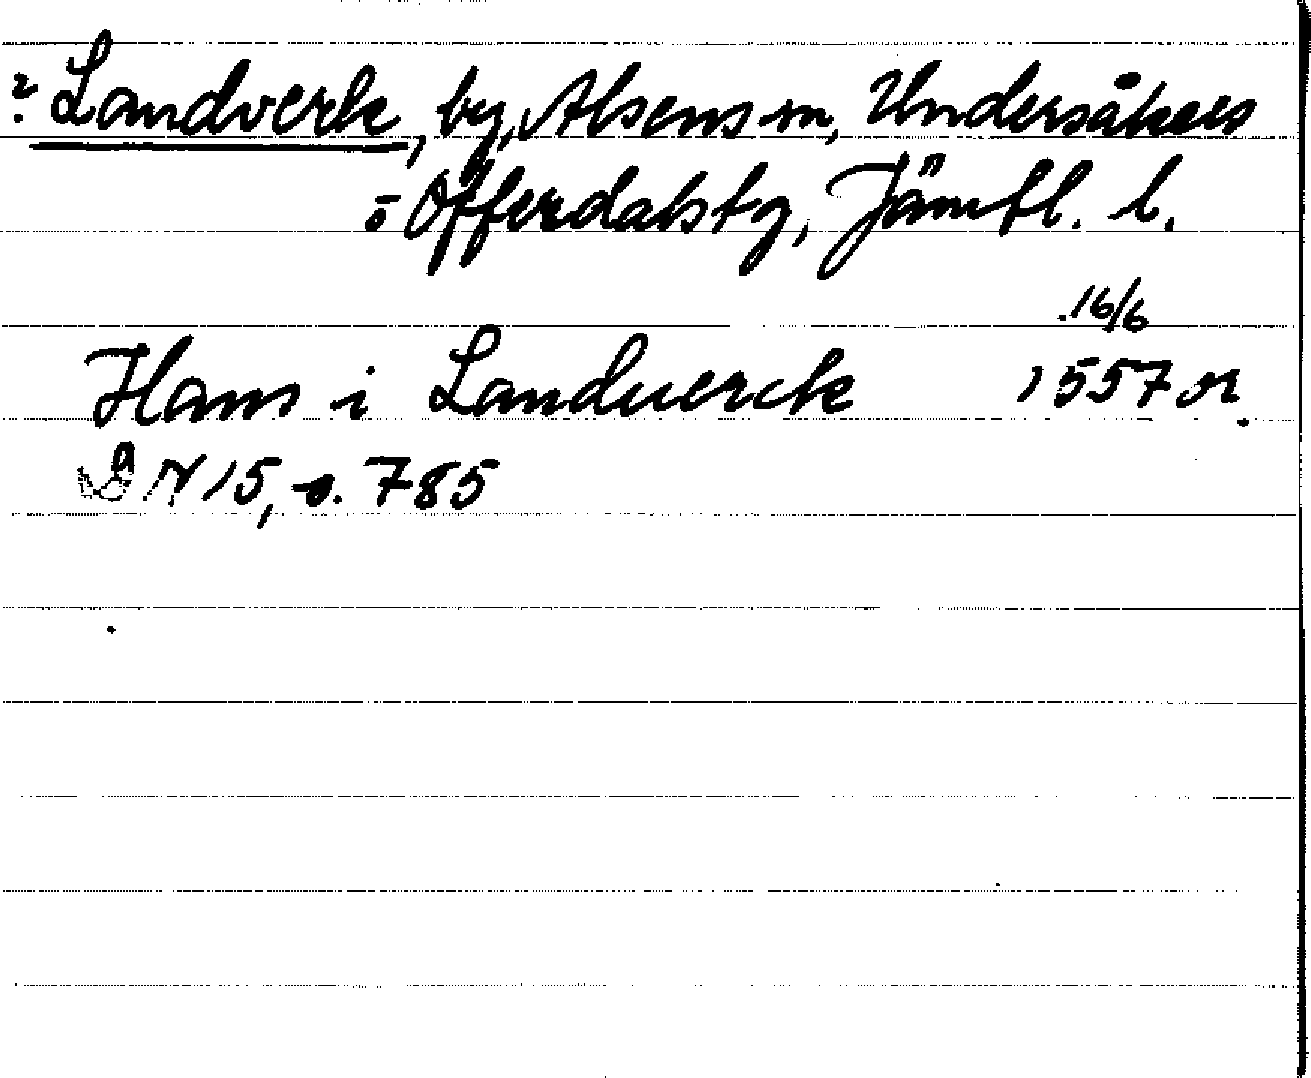 ? Landverk, by, Alsens sn, Undersåkers
o Offerdals tg, Jämtl. l.
16/6
Hans i Landuerck 1557 or.
DN 15, s. 785